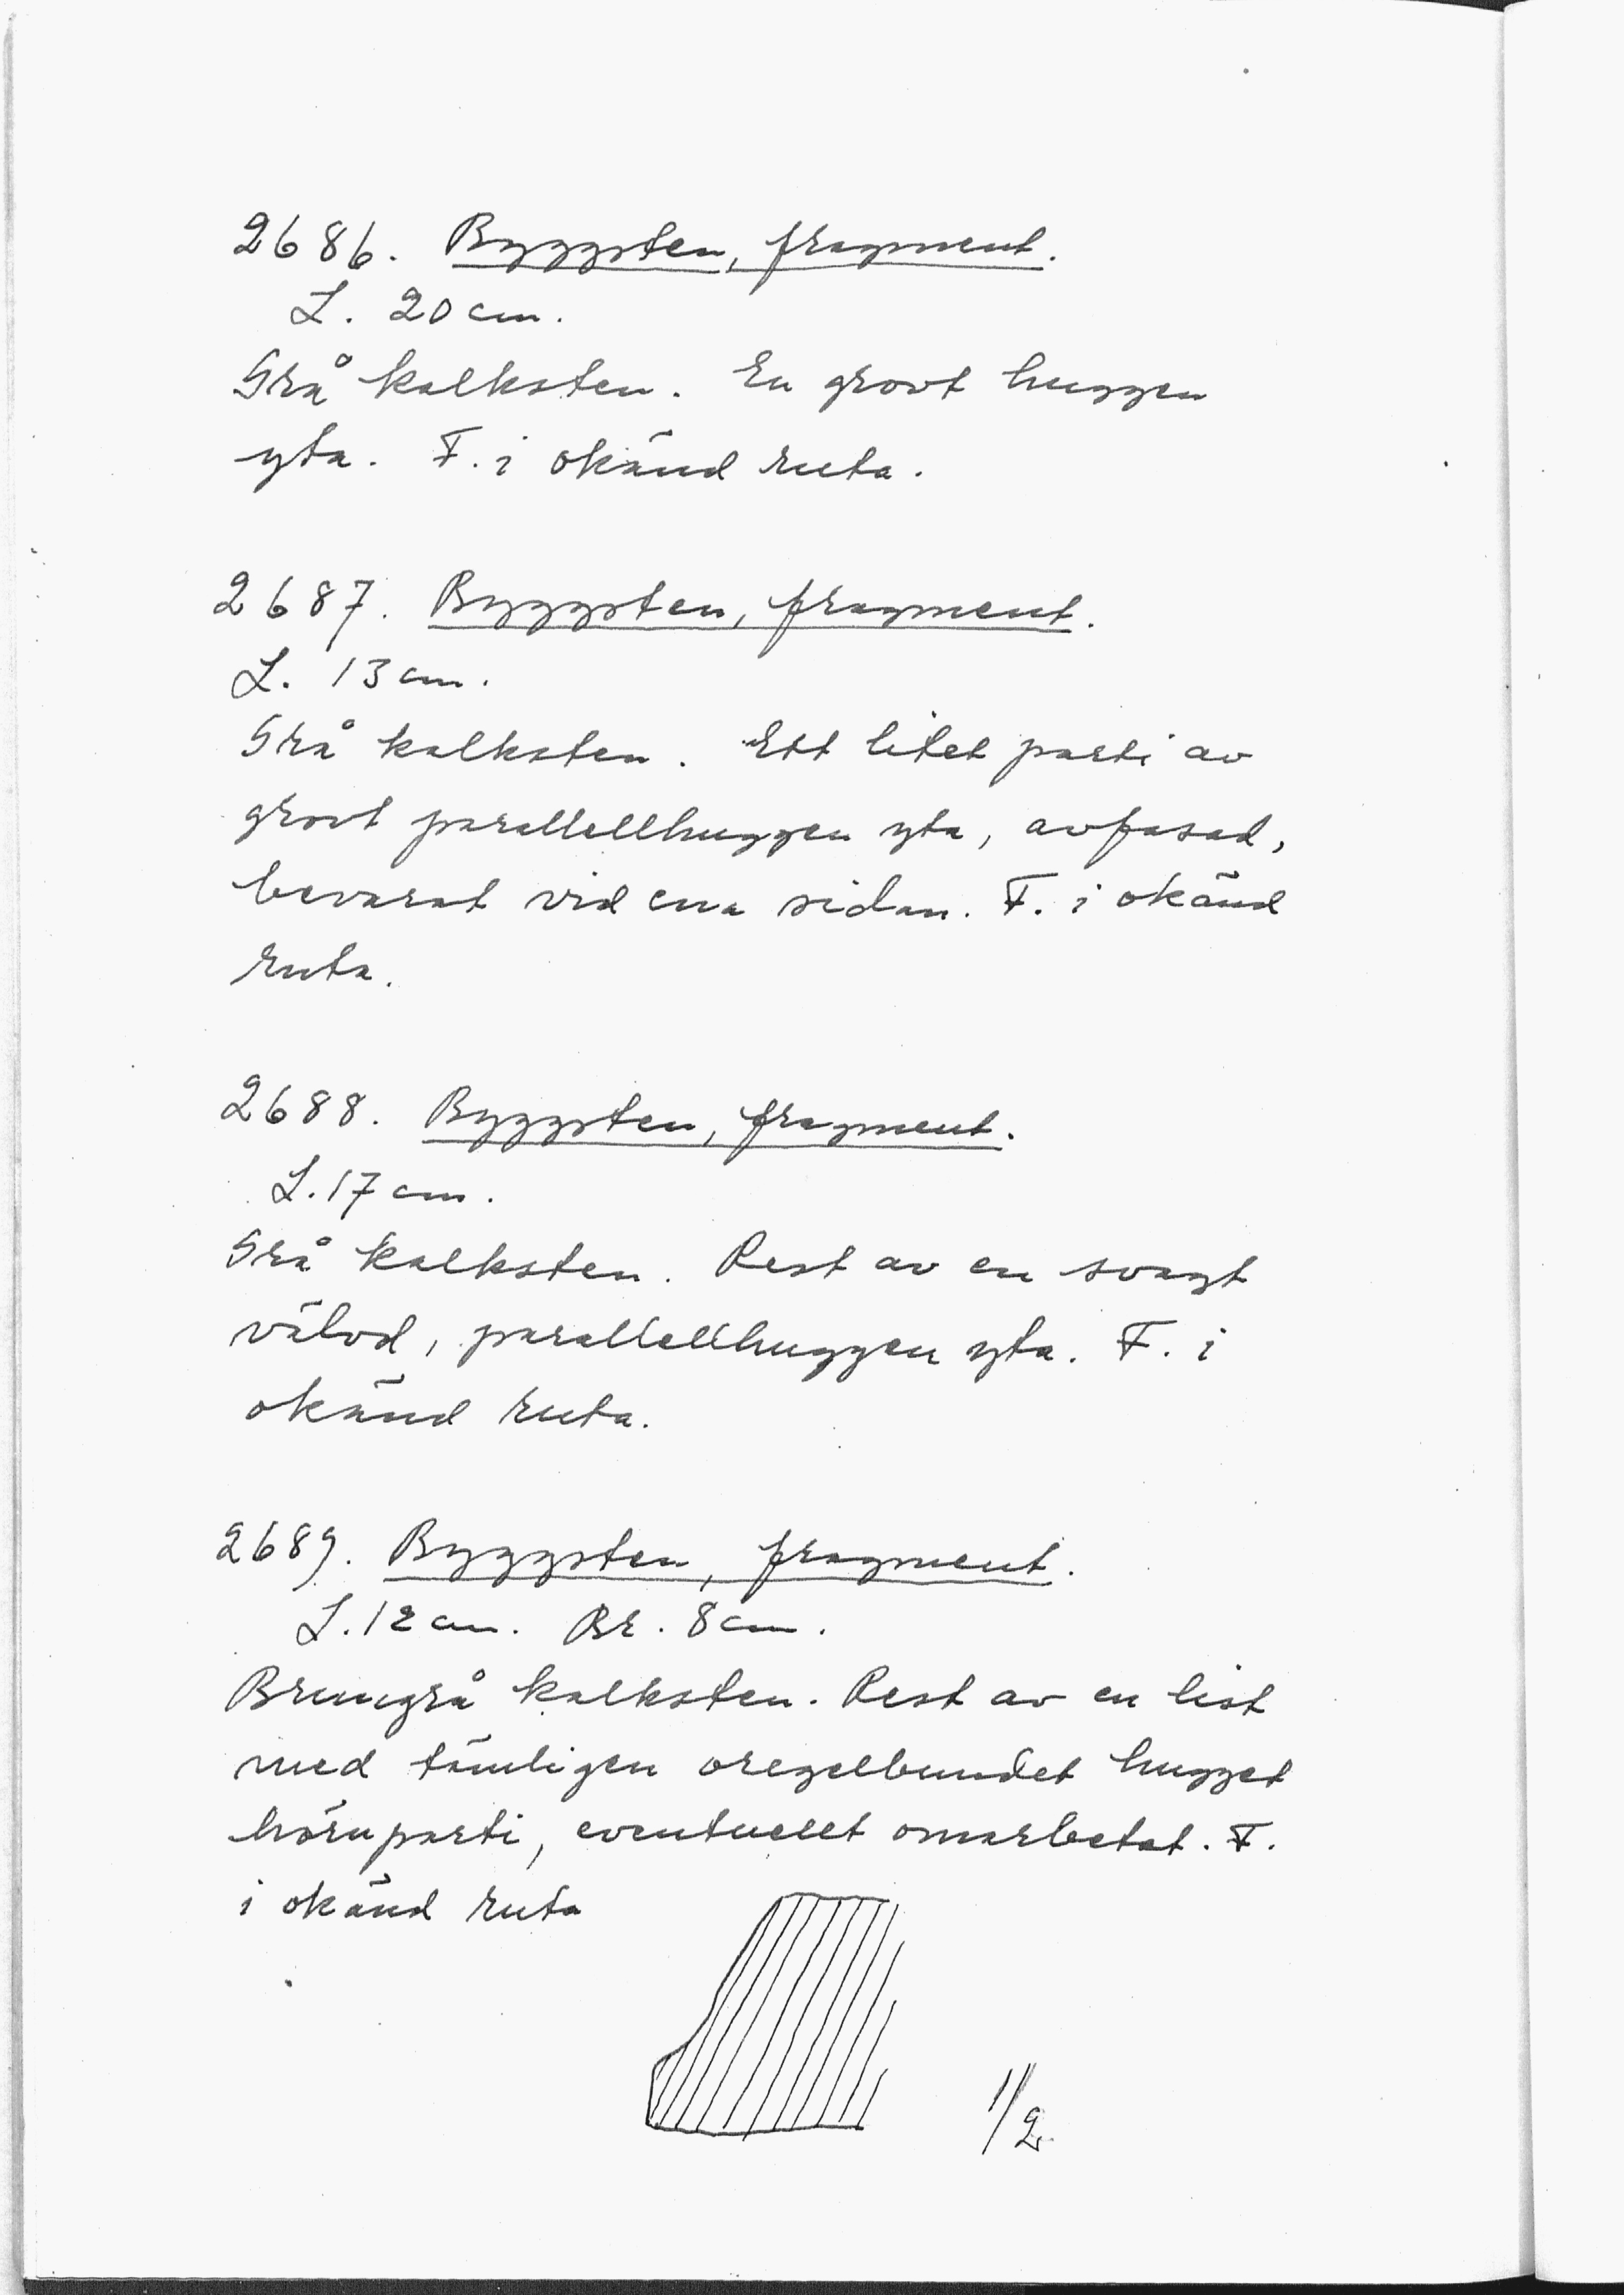 2686. Byggsten, fragment.
L. 20 cm.
Grå kalksten. En grovt huggen
yta. F. i okänd ruta.
2687. Byggsten, fragment.
L. 13 cm.
Grå kalksten. Ett litet parti av
grovt parallellhuggen yta, avfasad,
bevarat vid ena sidan. F. i okänd
ruta.
2688. Byggsten, fragment.
L. 17 cm.
Grå kalksten. Rest av en svagt
välvd, parallellhuggen yta. F. i
okänd ruta.
2689. Byggsten, fragment.
L. 12 cm. Br. 8 cm.
Brungrå kalksten. Rest av en list
med tämligen oregelbundet hugget
hörnparti, eventuellt omarbetat. F.
i okänd ruta
1/2